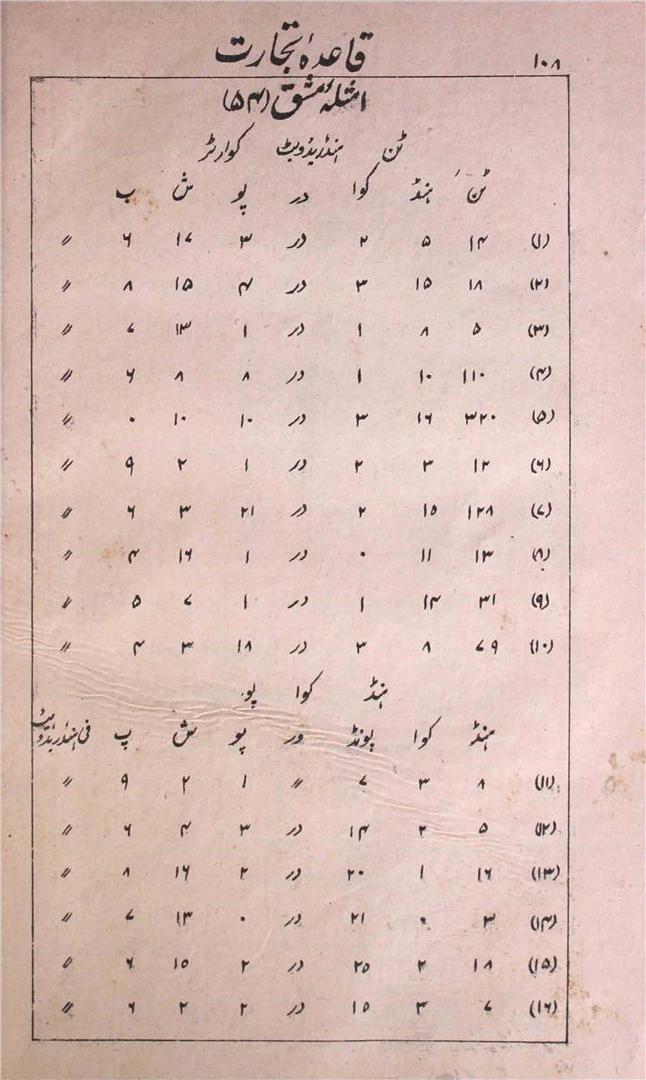 ۱۰۸ قاعدۂ تجارت
امثلہ مشق (۵۴)
ٹن ہنڈریڈویٹ کوارٹر
ٹن ہنڈ کوا در پو ش پ
(۱) ۱۴ ۵ ۲ در ۳ ۱۷ ۶〃
(۲) ۱۸ ۱۵ ۳ در ۴ ۱۵ ۸ 〃
(۳) ۵ ۸ ۱ در ۱ ۱۳ ۷ 〃
(۴) ۱۱۰ ۱۰ ۱ در ۸ ۸ ۶ 〃
(۵) ۳۲۰ ۱۶ ۳ در ۱۰ ۱۰ ۰ 〃
(۶) ۱۲ ۳ ۲ در ۱ ۲ ۹ 〃
(۷) ۱۲۸ ۱۵ ۲ در ۲۱ ۳ ۶ 〃
(۸) ۱۳ ۱۱ ۰ در ۱ ۱۶ ۴ 〃
(۹) ۳۱ ۱۴ ۱ در ۱ ۷ ۵ 〃
(۱۰) ۷۹ ۸ ۳ در ۱۸ ۳ ۴ 〃
ہنڈ کوا پو
ہنڈ کوا پونڈ در پو ش پ فی ہنڈریڈویٹ
(۱۱) ۸ ۳ ۷ 〃 ۱ ۲ ۹ 〃
(۱۲) ۵ ۲ ۱۴ در ۳ ۴ ۶ 〃
(۱۳) ۱۶ ۱ ۲۰ در ۲ ۱۶ ۸ 〃
(۱۴) ۳ ۰ ۲۱ در ۰ ۱۳ ۷ 〃
(۱۵) ۱۸ ۲ ۲۵ در ۲ ۱۵ ۶ 〃
(۱۶) ۷ ۳ ۱۵ در ۲ ۲ ۶ 〃